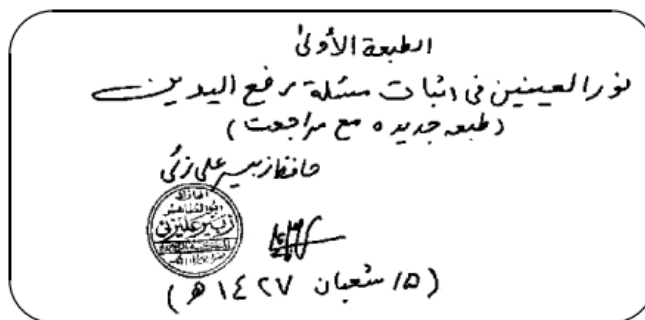 الطبعة الأولىٰ
نور العينين فی اثبات مسئلة رفع اليدين
(طبعه جديده مع مراجعت)
حافظ زبیر علی زئی
زبیر علیزئی
(۱۵ شعبان ۱۴۲۷ھ)